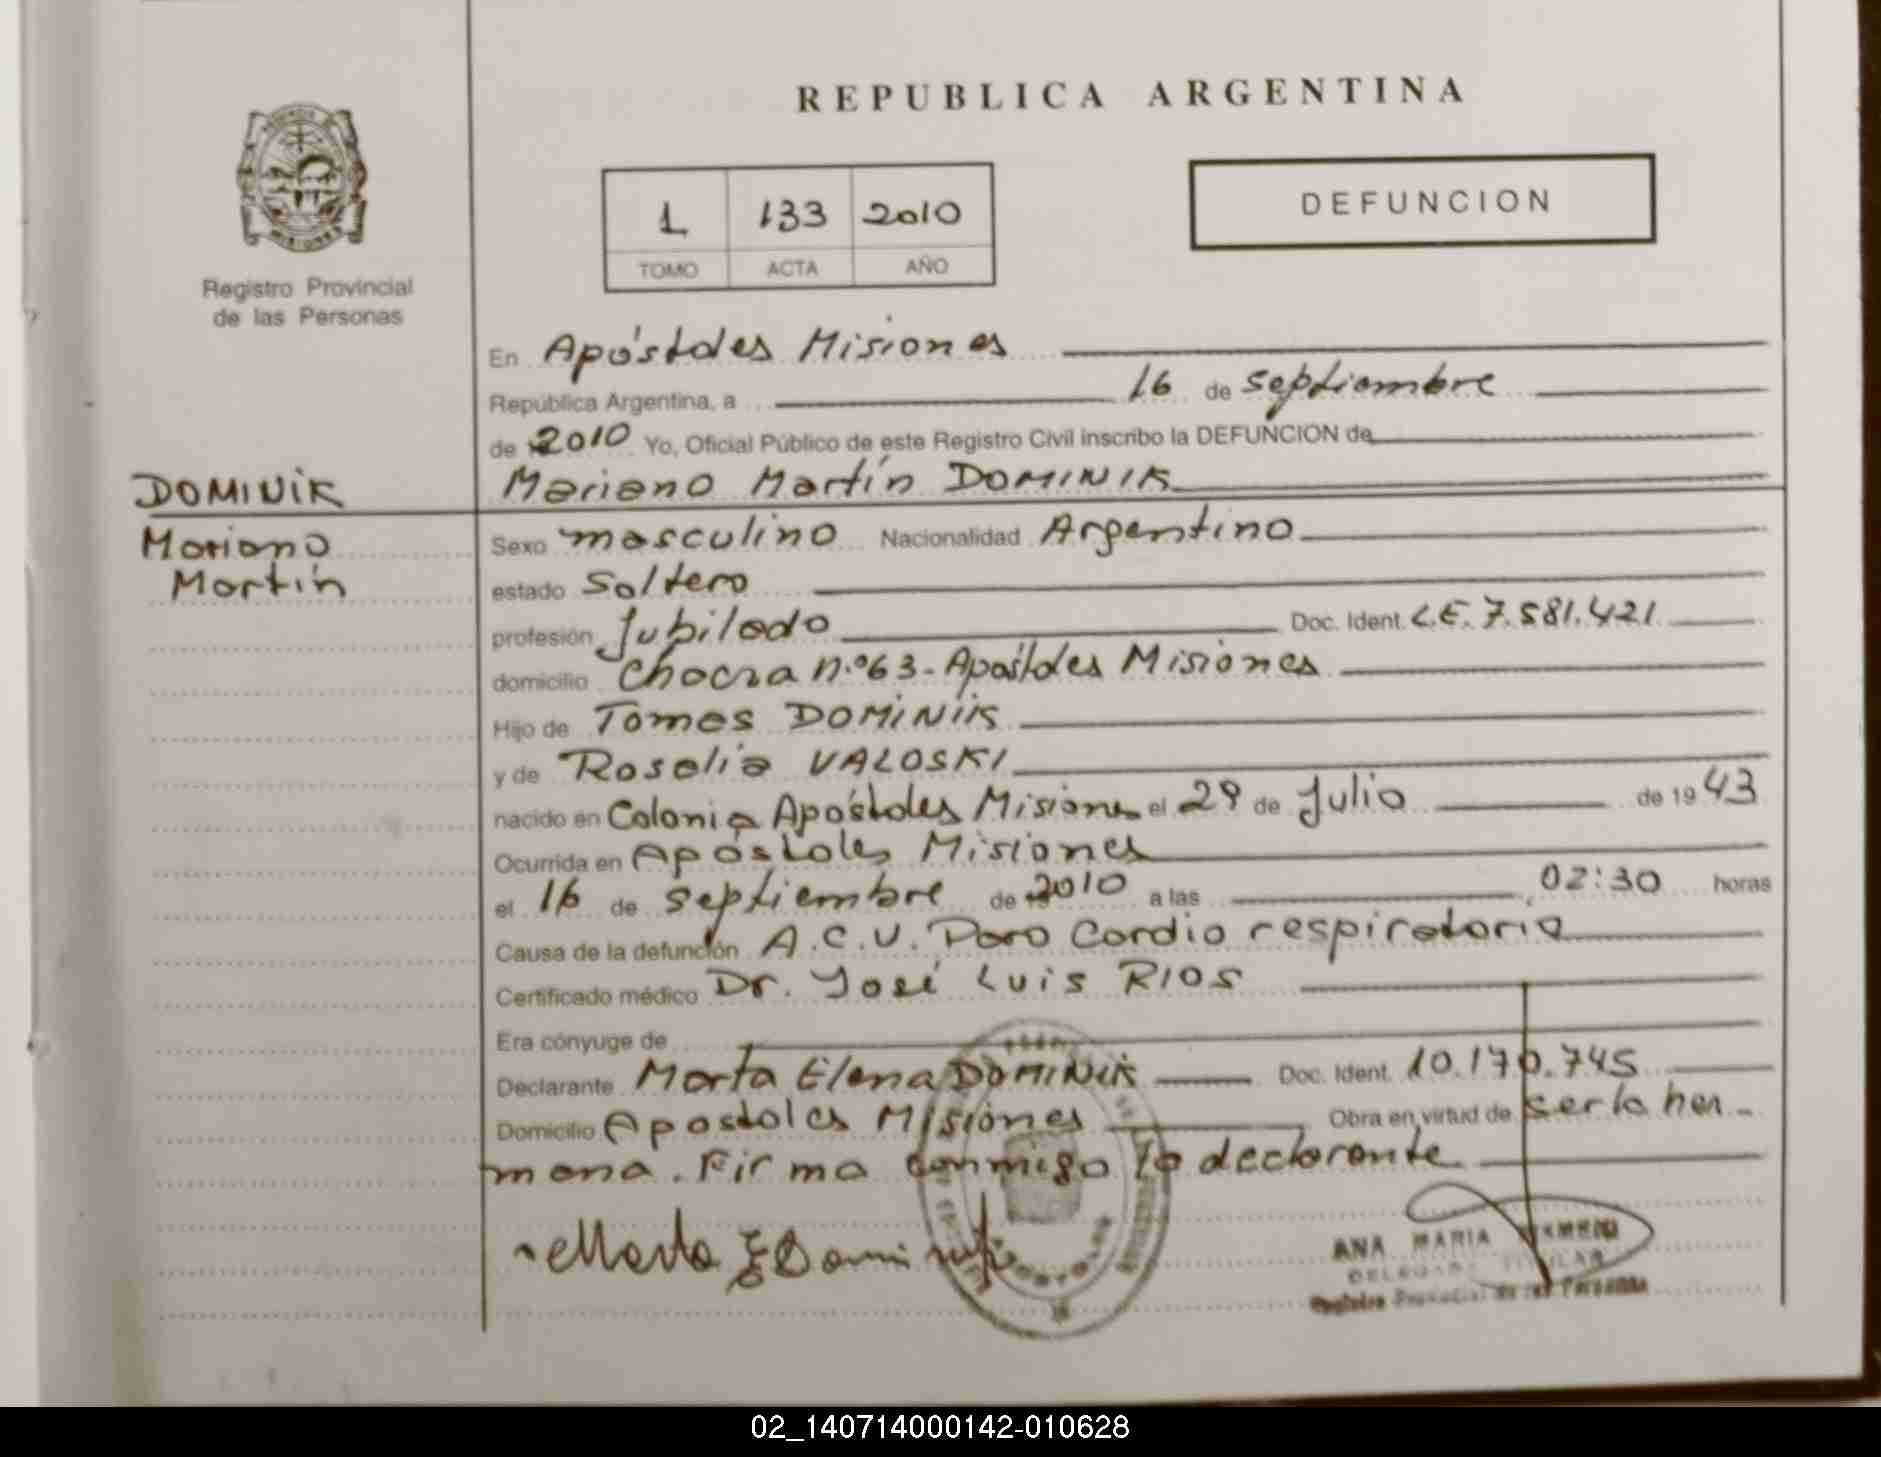 REPUBLICA ARGENTINA
1 133 2010
TOMO ACTA AÑO
DEFUNCION
MISIONES
Registro Provincial
de las Personas
En Apóstoles Misiones
República Argentina, a 16 de septiembre
de 2010 Yo, Oficial Público de este Registro Civil inscribo la DEFUNCION de
DOMINIK
Mariano
Martín
Mariano Martín DOMINIK
Sexo masculino Nacionalidad Argentino
estado Soltero
profesión Jubilado Doc. Ident. L.E. 7.581.421
domicilio Chacra n.º 63 - Apóstoles Misiones
Hijo de Tomas DOMINIK
y de Rosalia VALOSKI
nacido en Colonia Apóstoles Misiones el 29 de Julio de 1943
Ocurrida en Apóstoles Misiones
el 16 de septiembre de 2010 a las 02:30 horas
Causa de la defunción A.C.V. Paro Cardio respiratorio
Certificado médico Dr. José Luis RIOS
Era cónyuge de
Declarante Marta Elena DOMINIK Doc. Ident. 10.170.745
Domicilio Apostoles Misiones Obra en virtud de ser la her-
mana. Firma conmigo la declarante
Marta E Dominik
ANA MARIA
DELEGADA TITULAR
Registro Provincial de las Personas
02_140714000142-010628